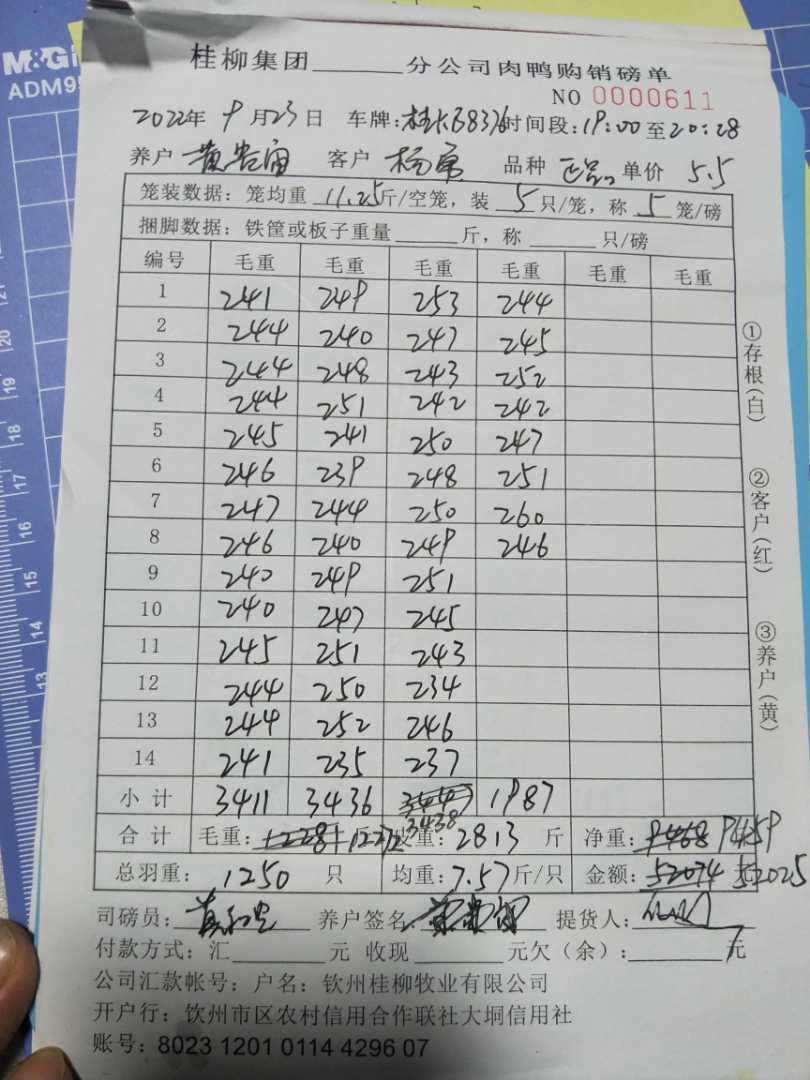 M&G
ADM95
桂柳集团______分公司肉鸭购销磅单
NO 0000611
2022年 9月23日 车牌:桂KB8376 时间段:19:00至20:28
养户 客户 杨 品种 正品 单价 5.5
笼装数据:笼均重 11.25斤/空笼,装 5 只/笼,称 5 笼/磅
捆脚数据:铁筐或板子重量______斤,称______只/磅
编号 毛重 毛重 毛重 毛重 毛重 毛重
1 241 249 253 244
2 244 240 247 245
3 244 248 243 252
4 244 251 242 242
5 245 241 250 247
6 246 239 248 251
7 247 244 250 260
8 246 240 249 246
9 240 249 251
10 240 247 245
11 245 251 243
12 244 250 234
13 244 252 246
14 241 235 237
小计 3411 3436 3447 3438 1987
合计 毛重:12281 12272 皮重:2813 斤 净重:9468 9459
总羽重:1250 只 均重:7.57斤/只 金额:52074 52025
司磅员: 养户签名: 提货人:
付款方式:汇______元 收现______元欠(余):______元
公司汇款帐号:户名:钦州桂柳牧业有限公司
开户行:钦州市区农村信用合作联社大垌信用社
账号:8023 1201 0114 4296 07
①存根(白)
②客户(红)
③养户(黄)
21
20
19
18
17
16
15
14
13